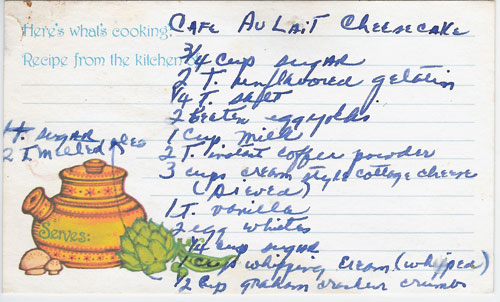 Here's what's cooking:
CAFE AU LAIT CHEESECAKE
Recipe from the kitchen
3/4 cup sugar
2 T. unflavored gelatin
1/4 T. salt
2 beaten egg yolks
1 cup Milk
2 T. instant coffee powder
3 cups cream style cottage cheese
(sieved)
1 T. vanilla
2 egg whites
1/4 cup sugar
1 cup whipping cream (whipped)
1/2 cup graham cracker crumbs
1 T. sugar
2 T melted oleo
Serves: